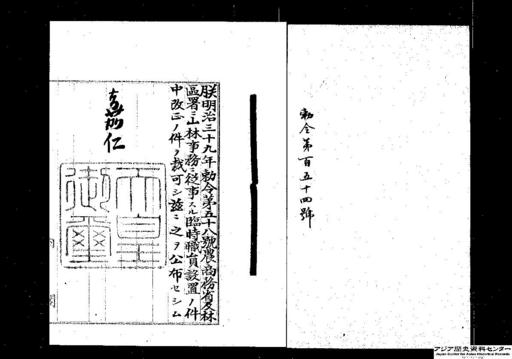 勅令第百五十四號
朕明治三十九年勅令第五十八號農商務省大林
區署ニ山林事務ニ從事スル臨時職員設置ノ件
中改正ノ件ヲ裁可シ玆ニ之ヲ公布セシム
嘉仁
天皇御璽
内閣
アジア歴史資料センター
Japan Center for Asian Historical Records